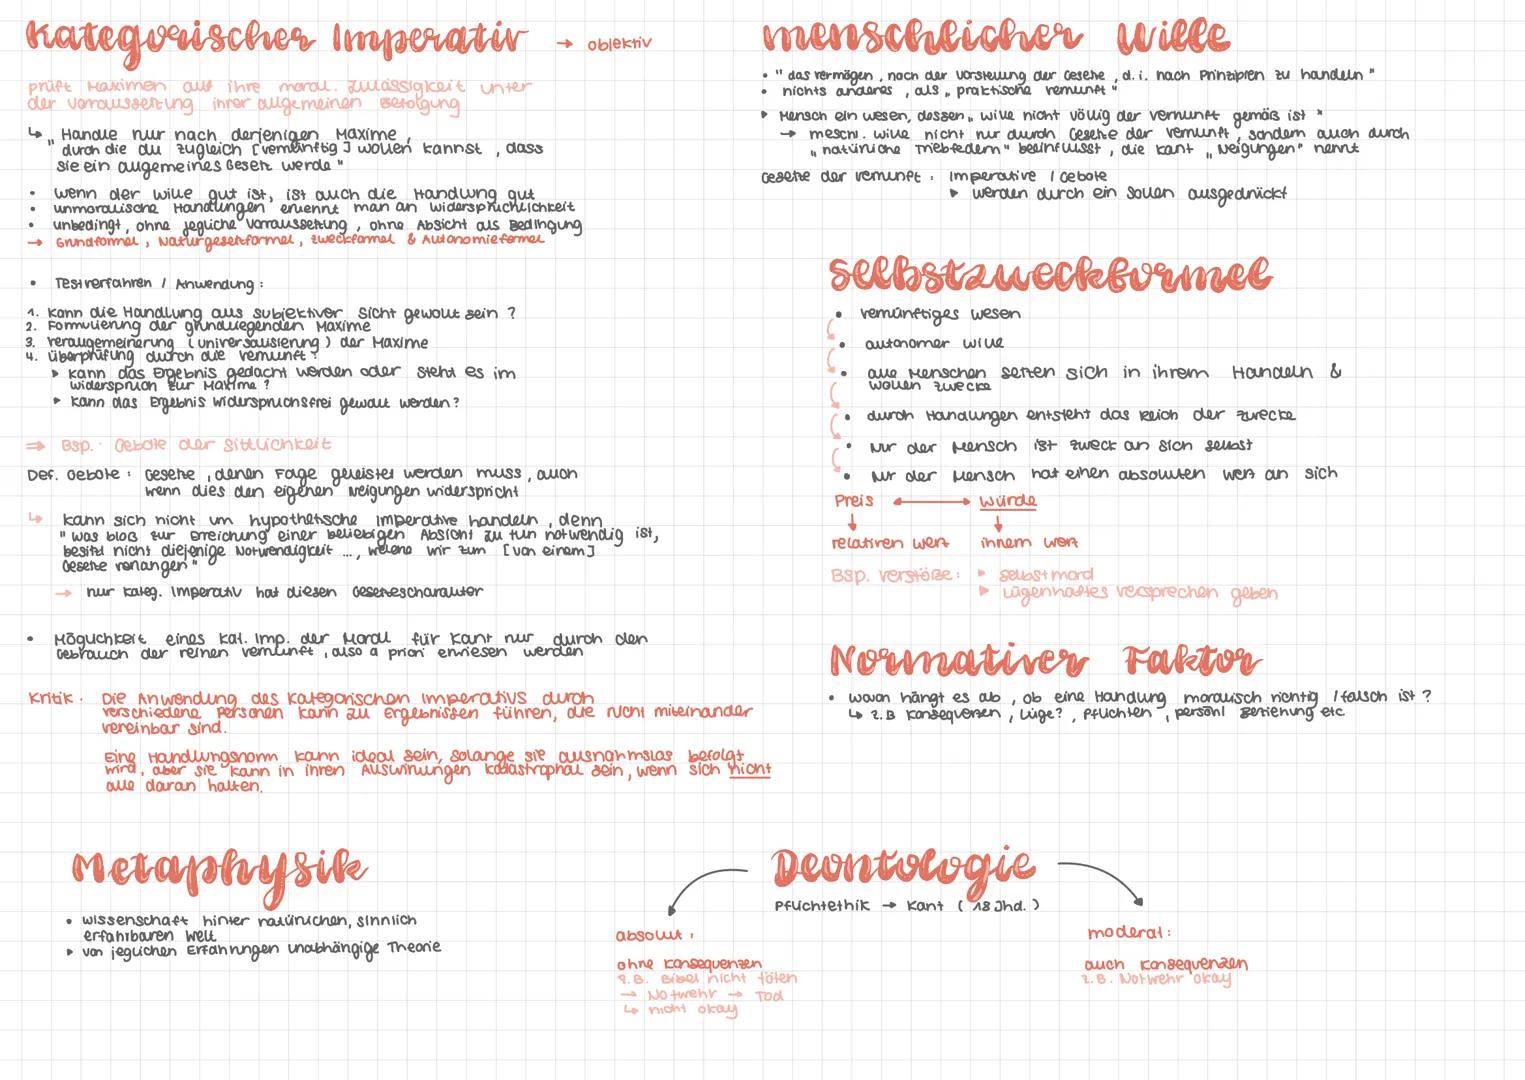 Kategorischer Imperativ → objektiv
prüft Maximen auf ihre moral. Zulässigkeit unter
der Voraussetzung ihrer allgemeinen Befolgung
↳ "Handle nur nach derjenigen Maxime,
durch die du zugleich [vernünftig] wollen kannst, dass
sie ein allgemeines Gesetz werde"
• wenn der Wille gut ist, ist auch die Handlung gut
• unmoralische Handlungen erkennt man an Widersprüchlichkeit
• unbedingt, ohne jegliche Vorraussetzung, ohne Absicht als Bedingung
→ Grundformel, Naturgesetzformel, Zweckformel & Autonomieformel
• Testverfahren / Anwendung:
1. Kann die Handlung aus subjektiver Sicht gewollt sein?
2. Formulierung der grundliegenden Maxime
3. Verallgemeinerung (Universalisierung) der Maxime
4. Überprüfung durch die Vernunft:
▸ Kann das Ergebnis gedacht werden oder steht es im
Widerspruch zur Maxime?
▸ Kann das Ergebnis widerspruchsfrei gewollt werden?
⇒ Bsp.: Gebote der Sittlichkeit
Def. Gebote: Gesetze, denen Folge geleistet werden muss, auch
wenn dies den eigenen Neigungen widerspricht
↳ kann sich nicht um hypothetische Imperative handeln, denn
"was bloß zur Erreichung einer beliebigen Absicht zu tun notwendig ist,
besitzt nicht diejenige Notwendigkeit ..., welche wir zum [von einem]
Gesetze verlangen"
→ nur kateg. Imperativ hat diesen Gesetzescharakter
• Möglichkeit eines kat. Imp. der Moral für Kant nur durch den
Gebrauch der reinen Vernunft, also a priori erwiesen werden
Kritik: Die Anwendung des kategorischen Imperativs durch
verschiedene Personen kann zu Ergebnissen führen, die nicht miteinander
vereinbar sind.
Eine Handlungsnorm kann ideal sein, solange sie ausnahmslos befolgt
wird, aber sie kann in ihren Auswirkungen katastrophal sein, wenn sich nicht
alle daran halten.
menschlicher Wille
• "das Vermögen, nach der Vorstellung der Gesetze, d.i. nach Prinzipien zu handeln"
• nichts anderes, als „praktische Vernunft"
▸ Mensch ein Wesen, dessen „Wille nicht völlig der Vernunft gemäß ist"
→ mesch. Wille nicht nur durch Gesetze der Vernunft, sondern auch durch
„natürliche Triebfedern" beeinflusst, die Kant „Neigungen" nennt
Gesetze der Vernunft: Imperative / Gebote
▸ werden durch ein Sollen ausgedrückt
Selbstzweckformel
• vernünftiges Wesen
• autonomer Wille
• alle Menschen setzen sich in ihrem Handeln &
Wollen Zwecke
• durch Handlungen entsteht das Reich der Zwecke
• Nur der Mensch ist Zweck an sich selbst
• Nur der Mensch hat einen absoluten Wert an sich
Preis ↔ Würde
↓ ↓
relativen Wert innern Wert
Bsp. Verstöße: ▸ Selbstmord
▸ Lügenhaftes Versprechen geben
Normativer Faktor
• wovon hängt es ab, ob eine Handlung moralisch richtig / falsch ist?
↳ z.B Konsequenzen, Lüge?, Pflichten, persönl Beziehung etc
Metaphysik
• Wissenschaft hinter natürlichen, sinnlich
erfahrbaren Welt
▸ von jeglichen Erfahrungen unabhängige Theorie
Deontologie
Pflichtethik → Kant (18 Jhd.)
absolut:
ohne Konsequenzen
z.B. Bibel nicht töten
→ Notwehr → Tod
↳ nicht okay
moderat:
auch Konsequenzen
z.B. Notwehr okay